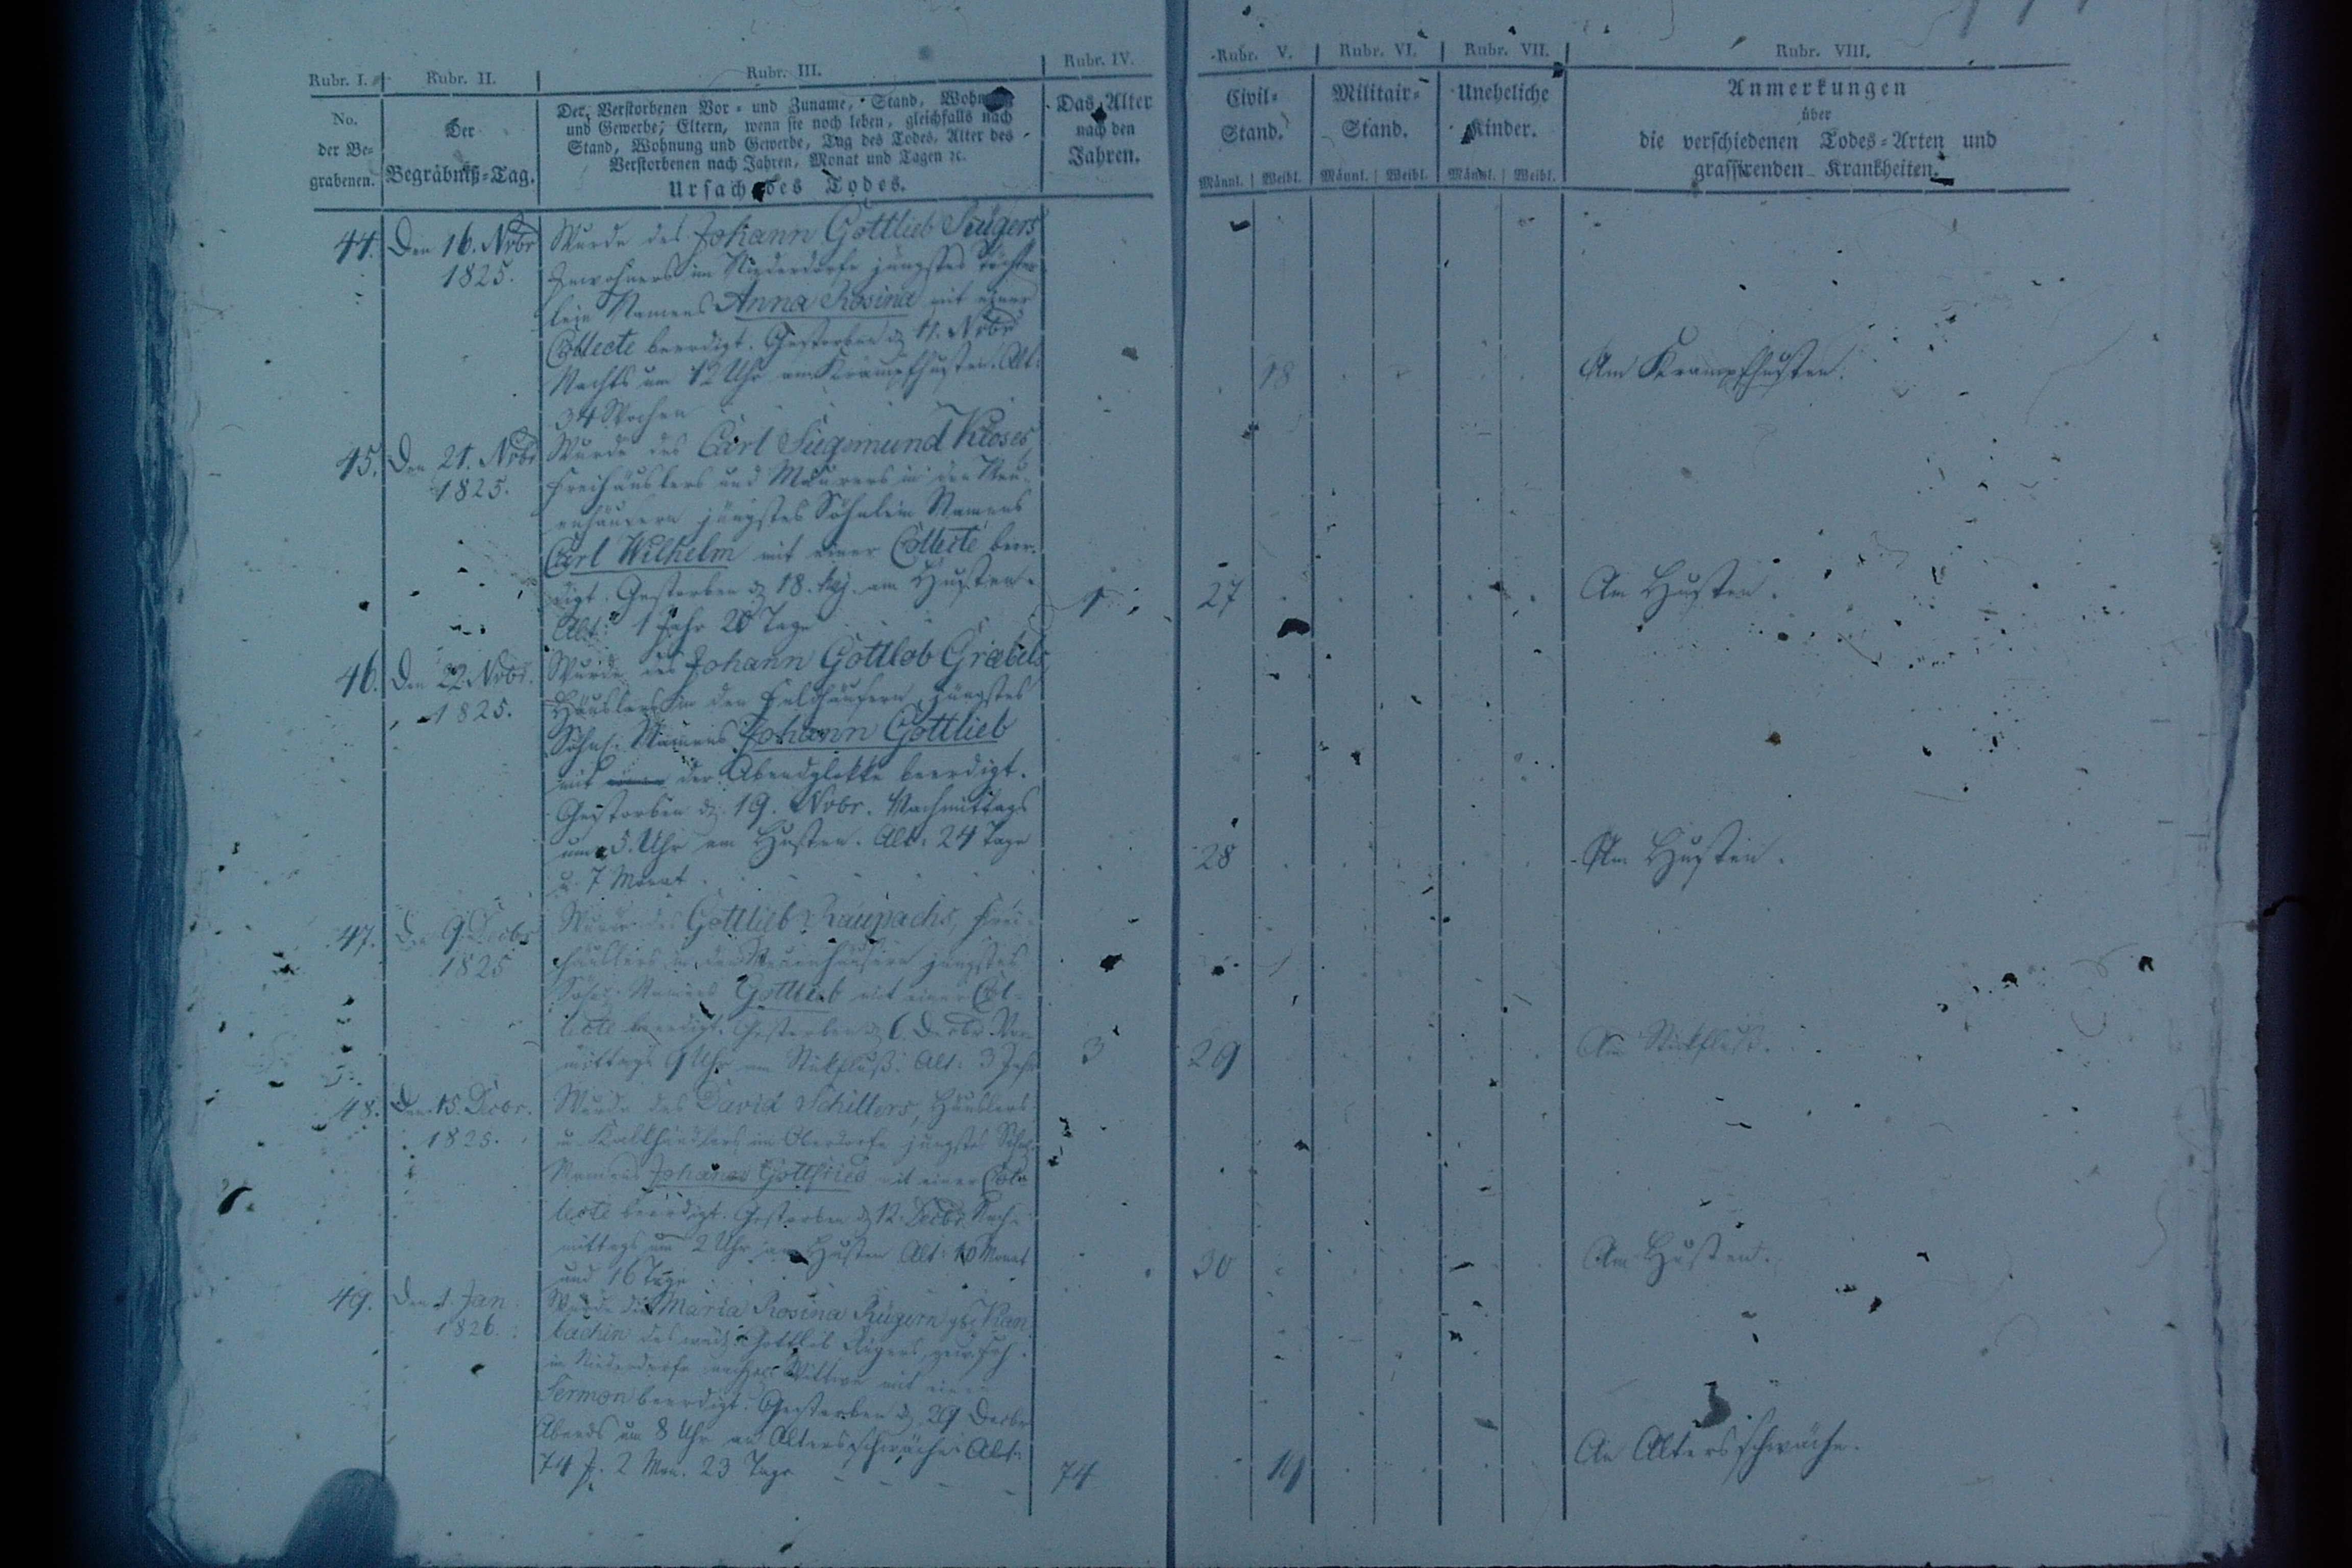 Rubr. I.
Rubr. II.
Rubr. III.
Rubr. IV.
Rubr. V.
Rubr. VI.
Rubr. VII.
Rubr. VIII.
No.
der Be-
grabenen.
Der
Begräbniß-Tag.
Der Verstorbenen Vor- und Zuname, Stand, Wohnung
und Gewerbe; Eltern, wenn sie noch leben, gleichfalls nach
Stand, Wohnung und Gewerbe, Tag des Todes, Alter des
Verstorbenen nach Jahren, Monat und Tagen ꝛc.
Ursach des Todes.
Das Alter
nach den
Jahren.
Civil-
Stand.
Männl. Weibl.
Militair-
Stand.
Männl. Weibl.
Uneheliche
Kinder.
Männl. Weibl.
Anmerkungen
über
die verschiedenen Todes-Arten und
grassirenden Krankheiten.
44. Den 16. Nvbr
1825.
Wurde des Johann Gottlieb
Inwohners im Niederdorfe jüngstes Töchter-
lein Namens Anna Rosina mit einer
Collecte beerdigt. Gestorben d. 11. Nvbr
Nachts um 12 Uhr am Krampfhusten. Alt:
34 Wochen
18
Am Krampfhusten.
45. Den 21. Nvbr
1825.
Wurde des Carl Siegmund Kloses
Freihäuslers und Maurers in den Neu-
enhäusern jüngstes Söhnlein Namens
Carl Wilhelm mit einer Collecte beer-
digt. Gestorben d. 18. huj. am Husten.
Alt: 1 Jahr 20 Tage
1
27
Am Husten.
46. Den 22. Nvbr.
1825.
Wurde des Johann Gottlob
Häuslers in den Feldhäusern jüngstes
Söhnl. Namens Johann Gottlieb
mit der Abendglokke beerdigt.
Gestorben d. 19. Nvbr. Nachmittags
um 5 Uhr am Husten. Alt: 24 Tage
u. 7 Monat
28
Am Husten.
47. Den 9. Decbr
1825
Wurde des Gottlieb Raupachs, Frei-
häuslers in den Neuenhäusern jüngstes
Söhnl. Namens Gottlieb mit einer Col-
lecte beerdigt. Gestorben d. 6. Decbr. Vor-
mittags 9 Uhr am Stikfluß. Alt: 3 Jahr
3
29
Am Stikfluß.
48. Den 15. Decbr.
1825.
Wurde des David Schillers, Häuslers
u. Kalkhändlers im Oberdorfe jüngstes Söhnl.
Namens Johann Gottfried mit einer Col-
lecte beerdigt. Gestorben d. 12. Decbr. Nach-
mittags um 2 Uhr am Husten Alt: 10 Monat
und 16 Tage
30
Am Husten.
49. Den 1. Jan.
1826.
Wurde die Maria Rosina
des weil. Gottlieb
im Niederdorfe Wittwe mit einem
Sermon beerdigt. Gestorben d. 29 Decbr
Abends um 8 Uhr an Altersschwäche. Alt:
74 J. 2 Mon. 23 Tage
74
19
An Altersschwäche.